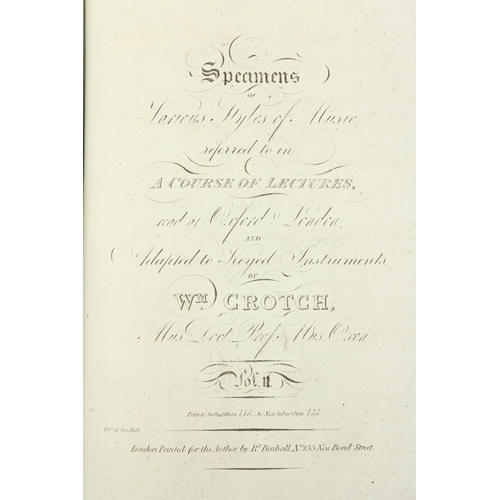 Specimens
OF
Various Styles of Music
referred to in
A COURSE OF LECTURES,
read at Oxford & London,
AND
Adapted to Keyed Instruments
BY
WM CROTCH,
Mus. Doct. Prof. Mus. Oxon.
Vol. II
Price to Subscribers to Non Subscribers
at Sta. Hall.
London, Printed for the Author, by Rt. Birchall, No. 133 New Bond Street.